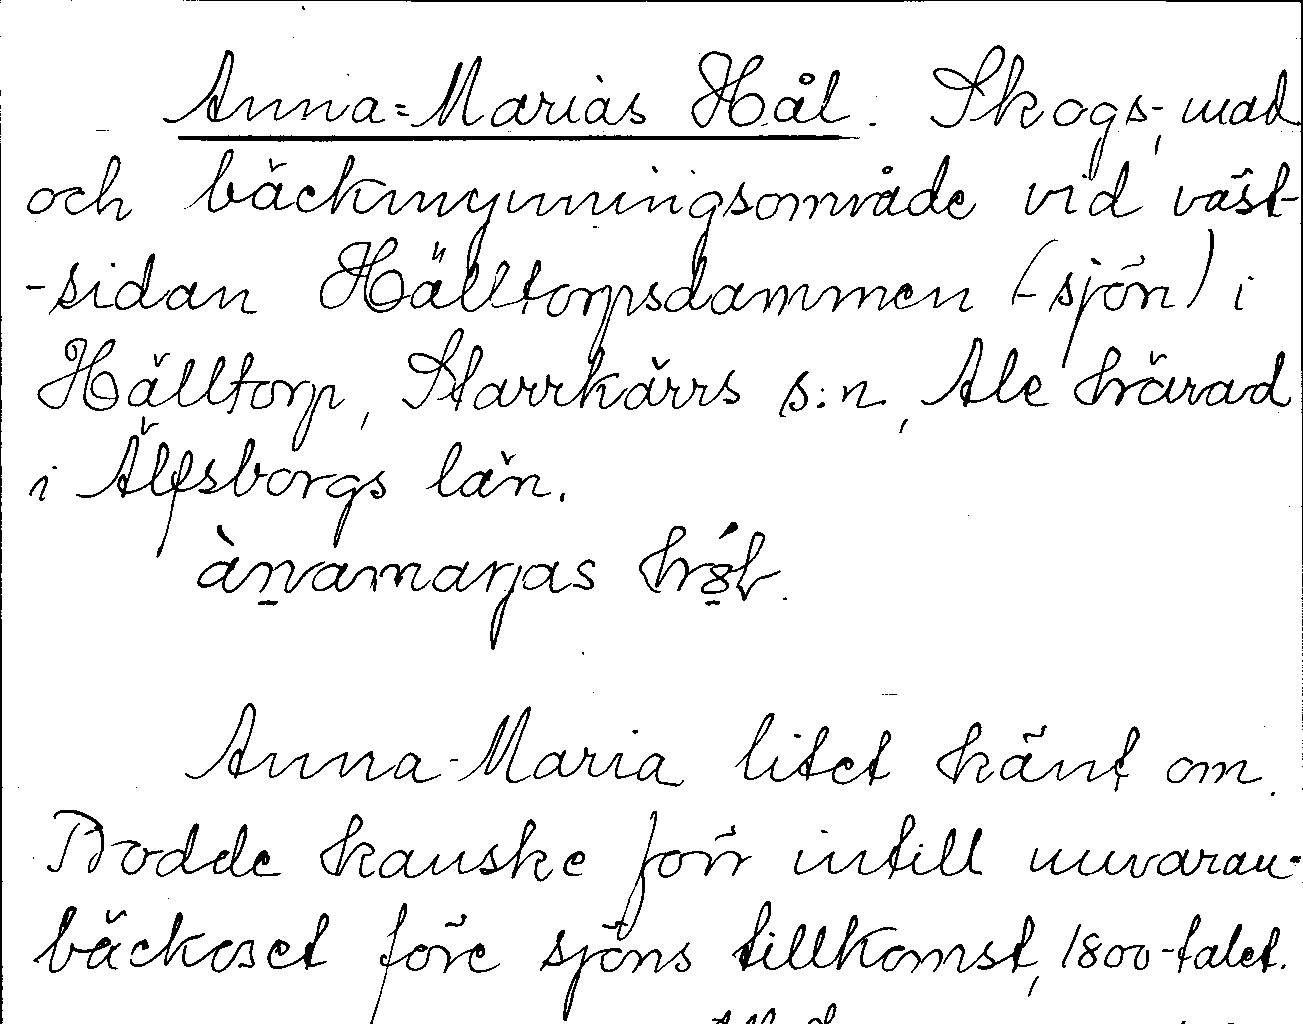 Anna-Marias Hål. Skogs-, mad
och bäckmynningsområde vid väst-
-sidan Hälltorpsdammen (-sjön) i
Hälltorp, Starrkärrs s:n, Ale härad
i Älfsborgs län.
ànamarjas
Anna-Maria litet känt om.
Bodde kanske förr intill nuvaran-
bäckoset före sjöns tillkomst, 1800-talet.